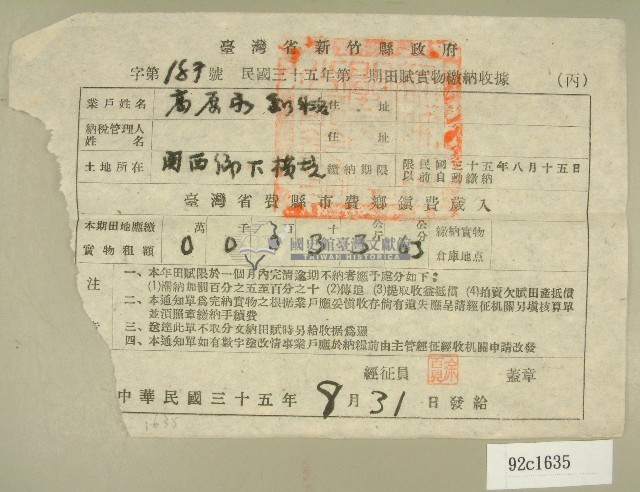 臺灣省新竹縣政府
字第 號 民國三十五年第一期田賦實物繳納收據 (丙)
業戶姓名 住址
納稅管理人姓名 住址
土地所在 関西鄉下橫坑 繳納期限 限民國三十五年八月十五日以前自動繳納
臺灣省費縣市費鄉鎮費歲入
本期田地應繳實物租額 萬 千 百 十 公斤 公分 繳納實物倉庫地点
0 0 3 3 3 05
國史館臺灣文獻館
TAIWAN HISTORICA
注
一、本年田賦限於一個月內完清逾期不納者應予處分如下:
(1)滯納加罰百分之五至百分之十 (2)傳追 (3)提取收益抵償 (4)拍賣欠賦田產抵償
二、本通知單爲完納實物之根据業戶應妥慎收存倘有遺失應呈請經征机關另塡核算單
並須照章繳納手續費
三、送達此單不取分文納田賦時另給收据爲憑
四、本通知單如有數字塗改情事業戶應於納糧前由主管經征經收机關申請改發
經征員 蓋章
中華民國三十五年 8月31日發給
1635
92c1635